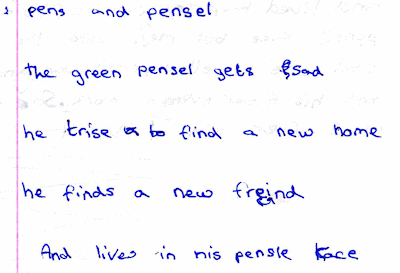 pens and pensel
the green pensel gets sad
he trise to find a new home
he finds a new freind
And lives in his pensle kace